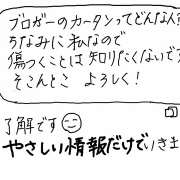 ブロガーのカータンってどんな人
ちなみに私なので
傷つくことは知りたくないです
そこんとこ よろしく！
了解です
やさしい情報だけで